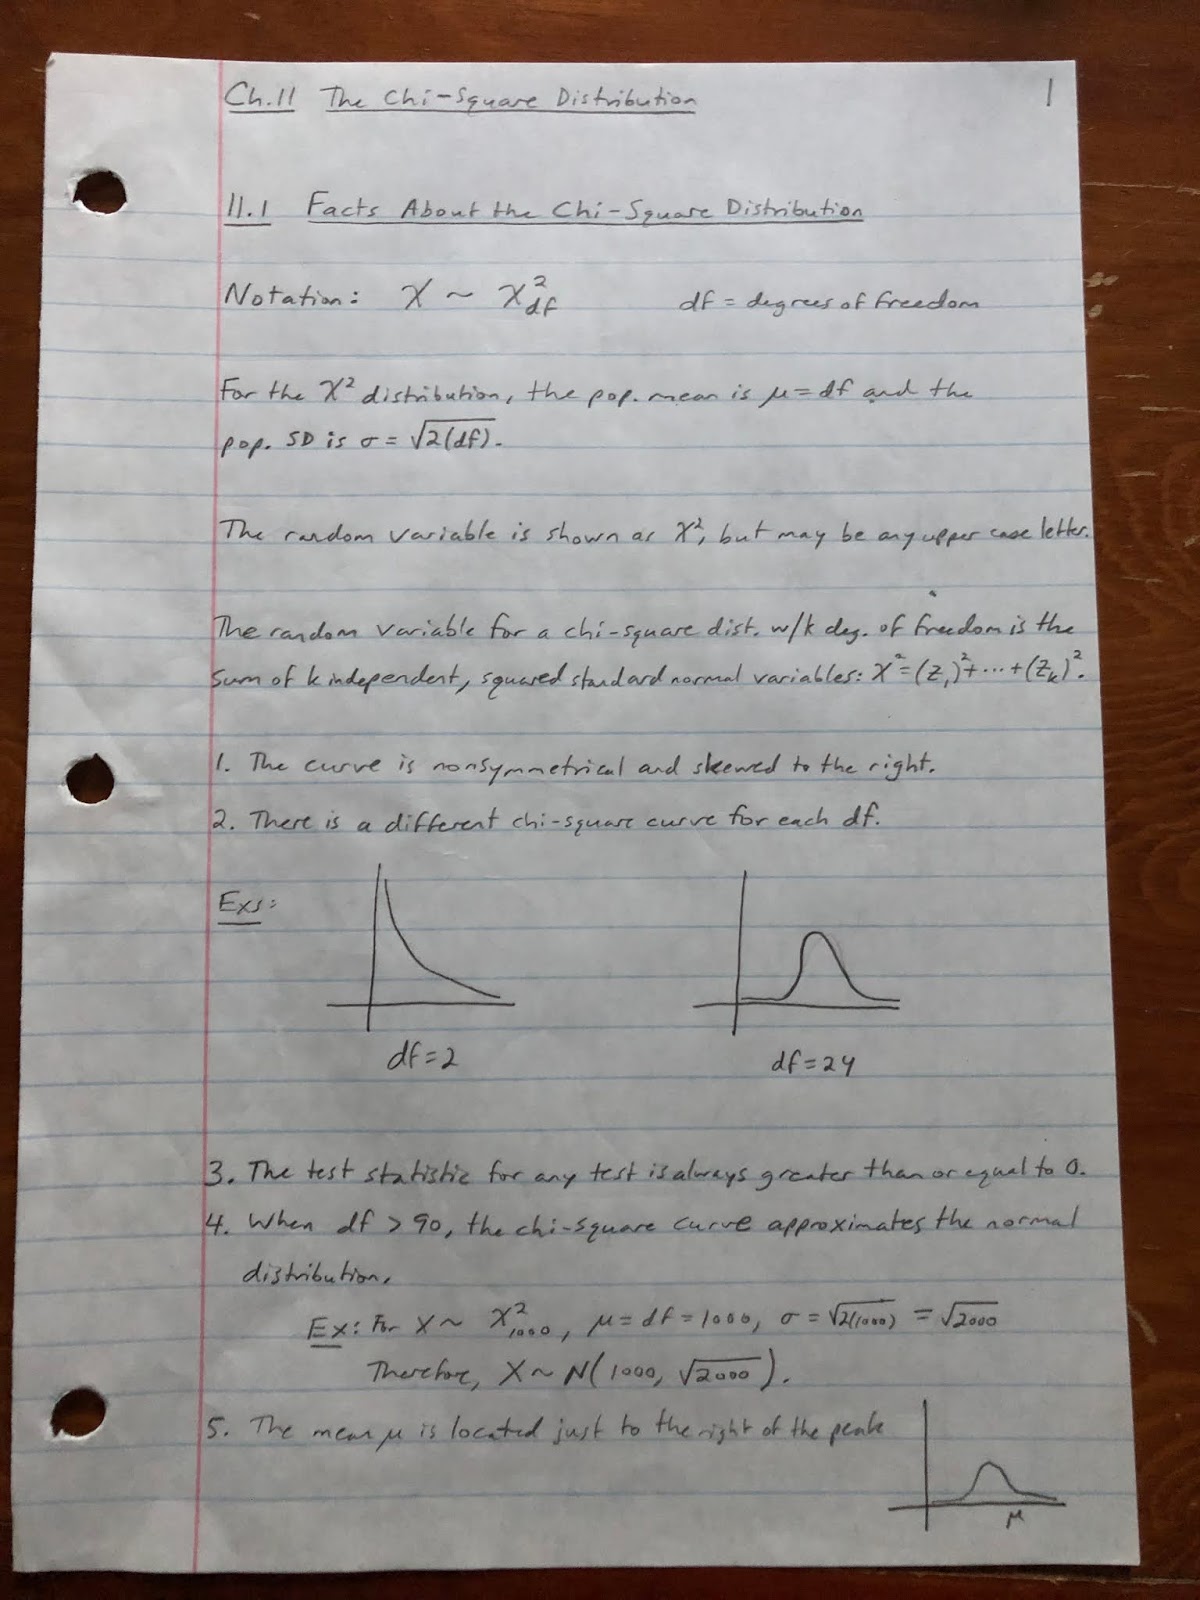 Ch.11 The Chi-Square Distribution 1
11.1 Facts About the Chi-Square Distribution
Notation: X ~ χ²_df df = degrees of freedom
For the χ² distribution, the pop. mean is μ = df and the
pop. SD is σ = √2(df).
The random variable is shown as χ², but may be any upper case letter.
The random variable for a chi-square dist. w/k deg. of freedom is the
sum of k independent, squared standard normal variables: χ² = (Z₁)² + ··· + (Zₖ)².
1. The curve is nonsymmetrical and skewed to the right.
2. There is a different chi-square curve for each df.
Exs:
df = 2 df = 24
3. The test statistic for any test is always greater than or equal to 0.
4. When df > 90, the chi-square curve approximates the normal
distribution.
Ex: For X ~ χ²₁₀₀₀, μ = df = 1000, σ = √2(1000) = √2000
Therefore, X ~ N(1000, √2000).
5. The mean μ is located just to the right of the peak
μ